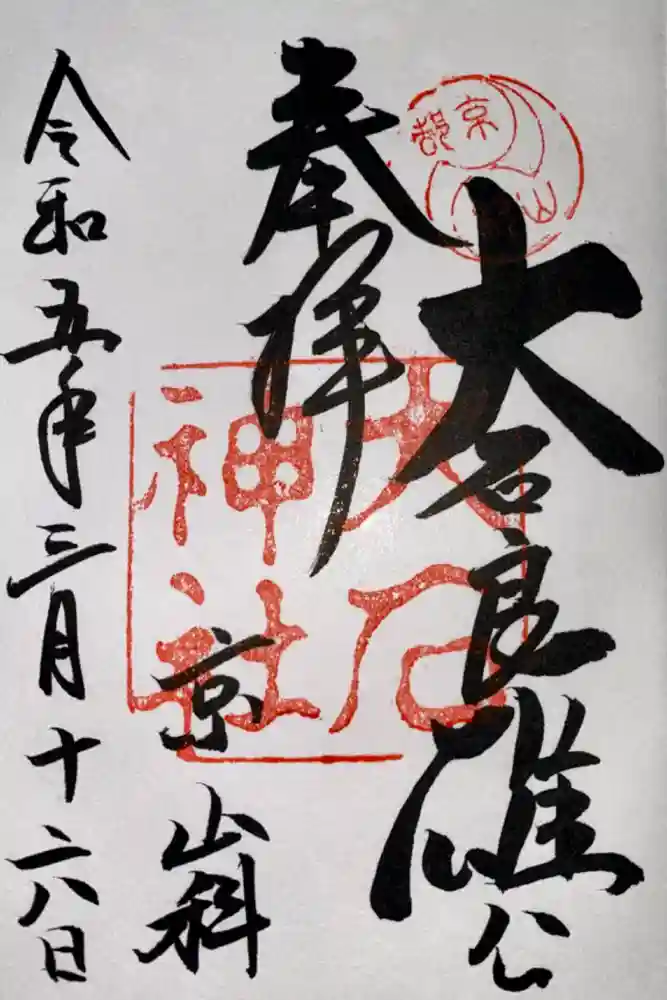 京都
山
大石良雄公
奉拝
大石
神社
京
山科
令和五年三月十六日